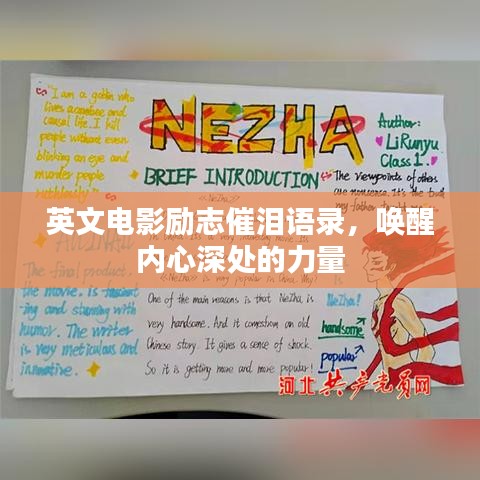 "I am a goblin who
lives a carefree and
casual life. I kill
people without even
blinking an eye and
murder people
NEZHA
BRIEF INTRODUCTION
Author:
LiRunyu
Class 1.
The viewpoints of others
are nonsense. It's the truth
my father
英文电影励志催泪语录,唤醒
内心深处的力量
The final product
the movie. is
ing and stunning with
humor. The writer
is very meticulous and
One of the main reasons is that NeZha is
very handsome. And it comes from an old
Chinese story. It gives a sense of shock.
So it is getting more and more popular!
NeZha!
handsome
popular
河北共产党员网